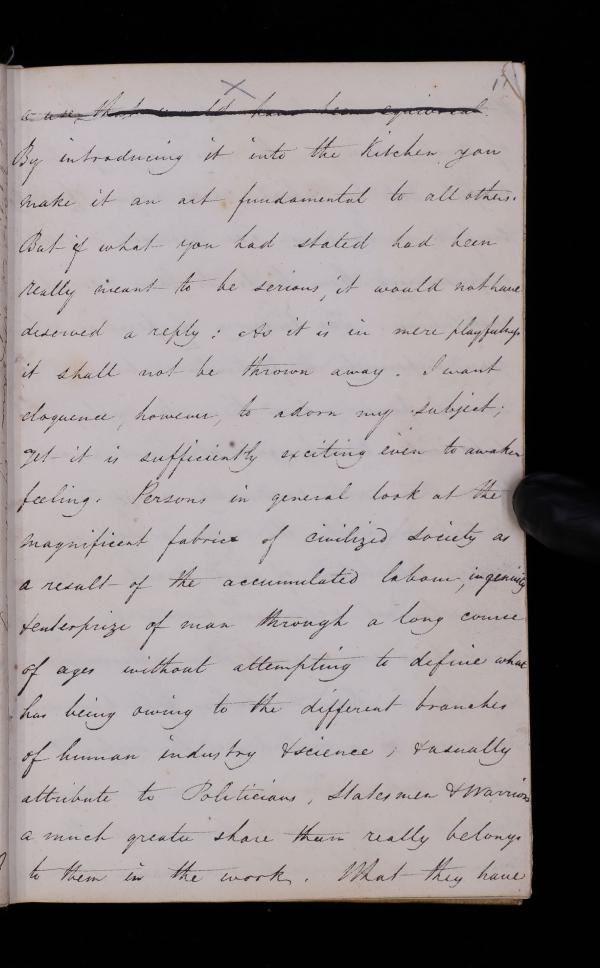 11
a use that would have been equivocal.
By introducing it into the Kitchen you
make it an art fundamental to all others.
But if what you had stated had been
really meant to be serious, it would not have
deserved a reply: As it is in mere playfulness
it shall not be thrown away. I want
eloquence, however, to adorn my subject;
yet it is sufficiently exciting even to awaken
feeling. Persons in general look at the
magnificent fabric of civilized society as
a result of the accumulated labour, ingenuity
& enterprize of man through a long course
of ages without attempting to define what
has being owing to the different branches
of human industry & science; & usually
attribute to Politicians, Statesmen & Warriors
a much greater share than really belongs
to them in the work. What they have